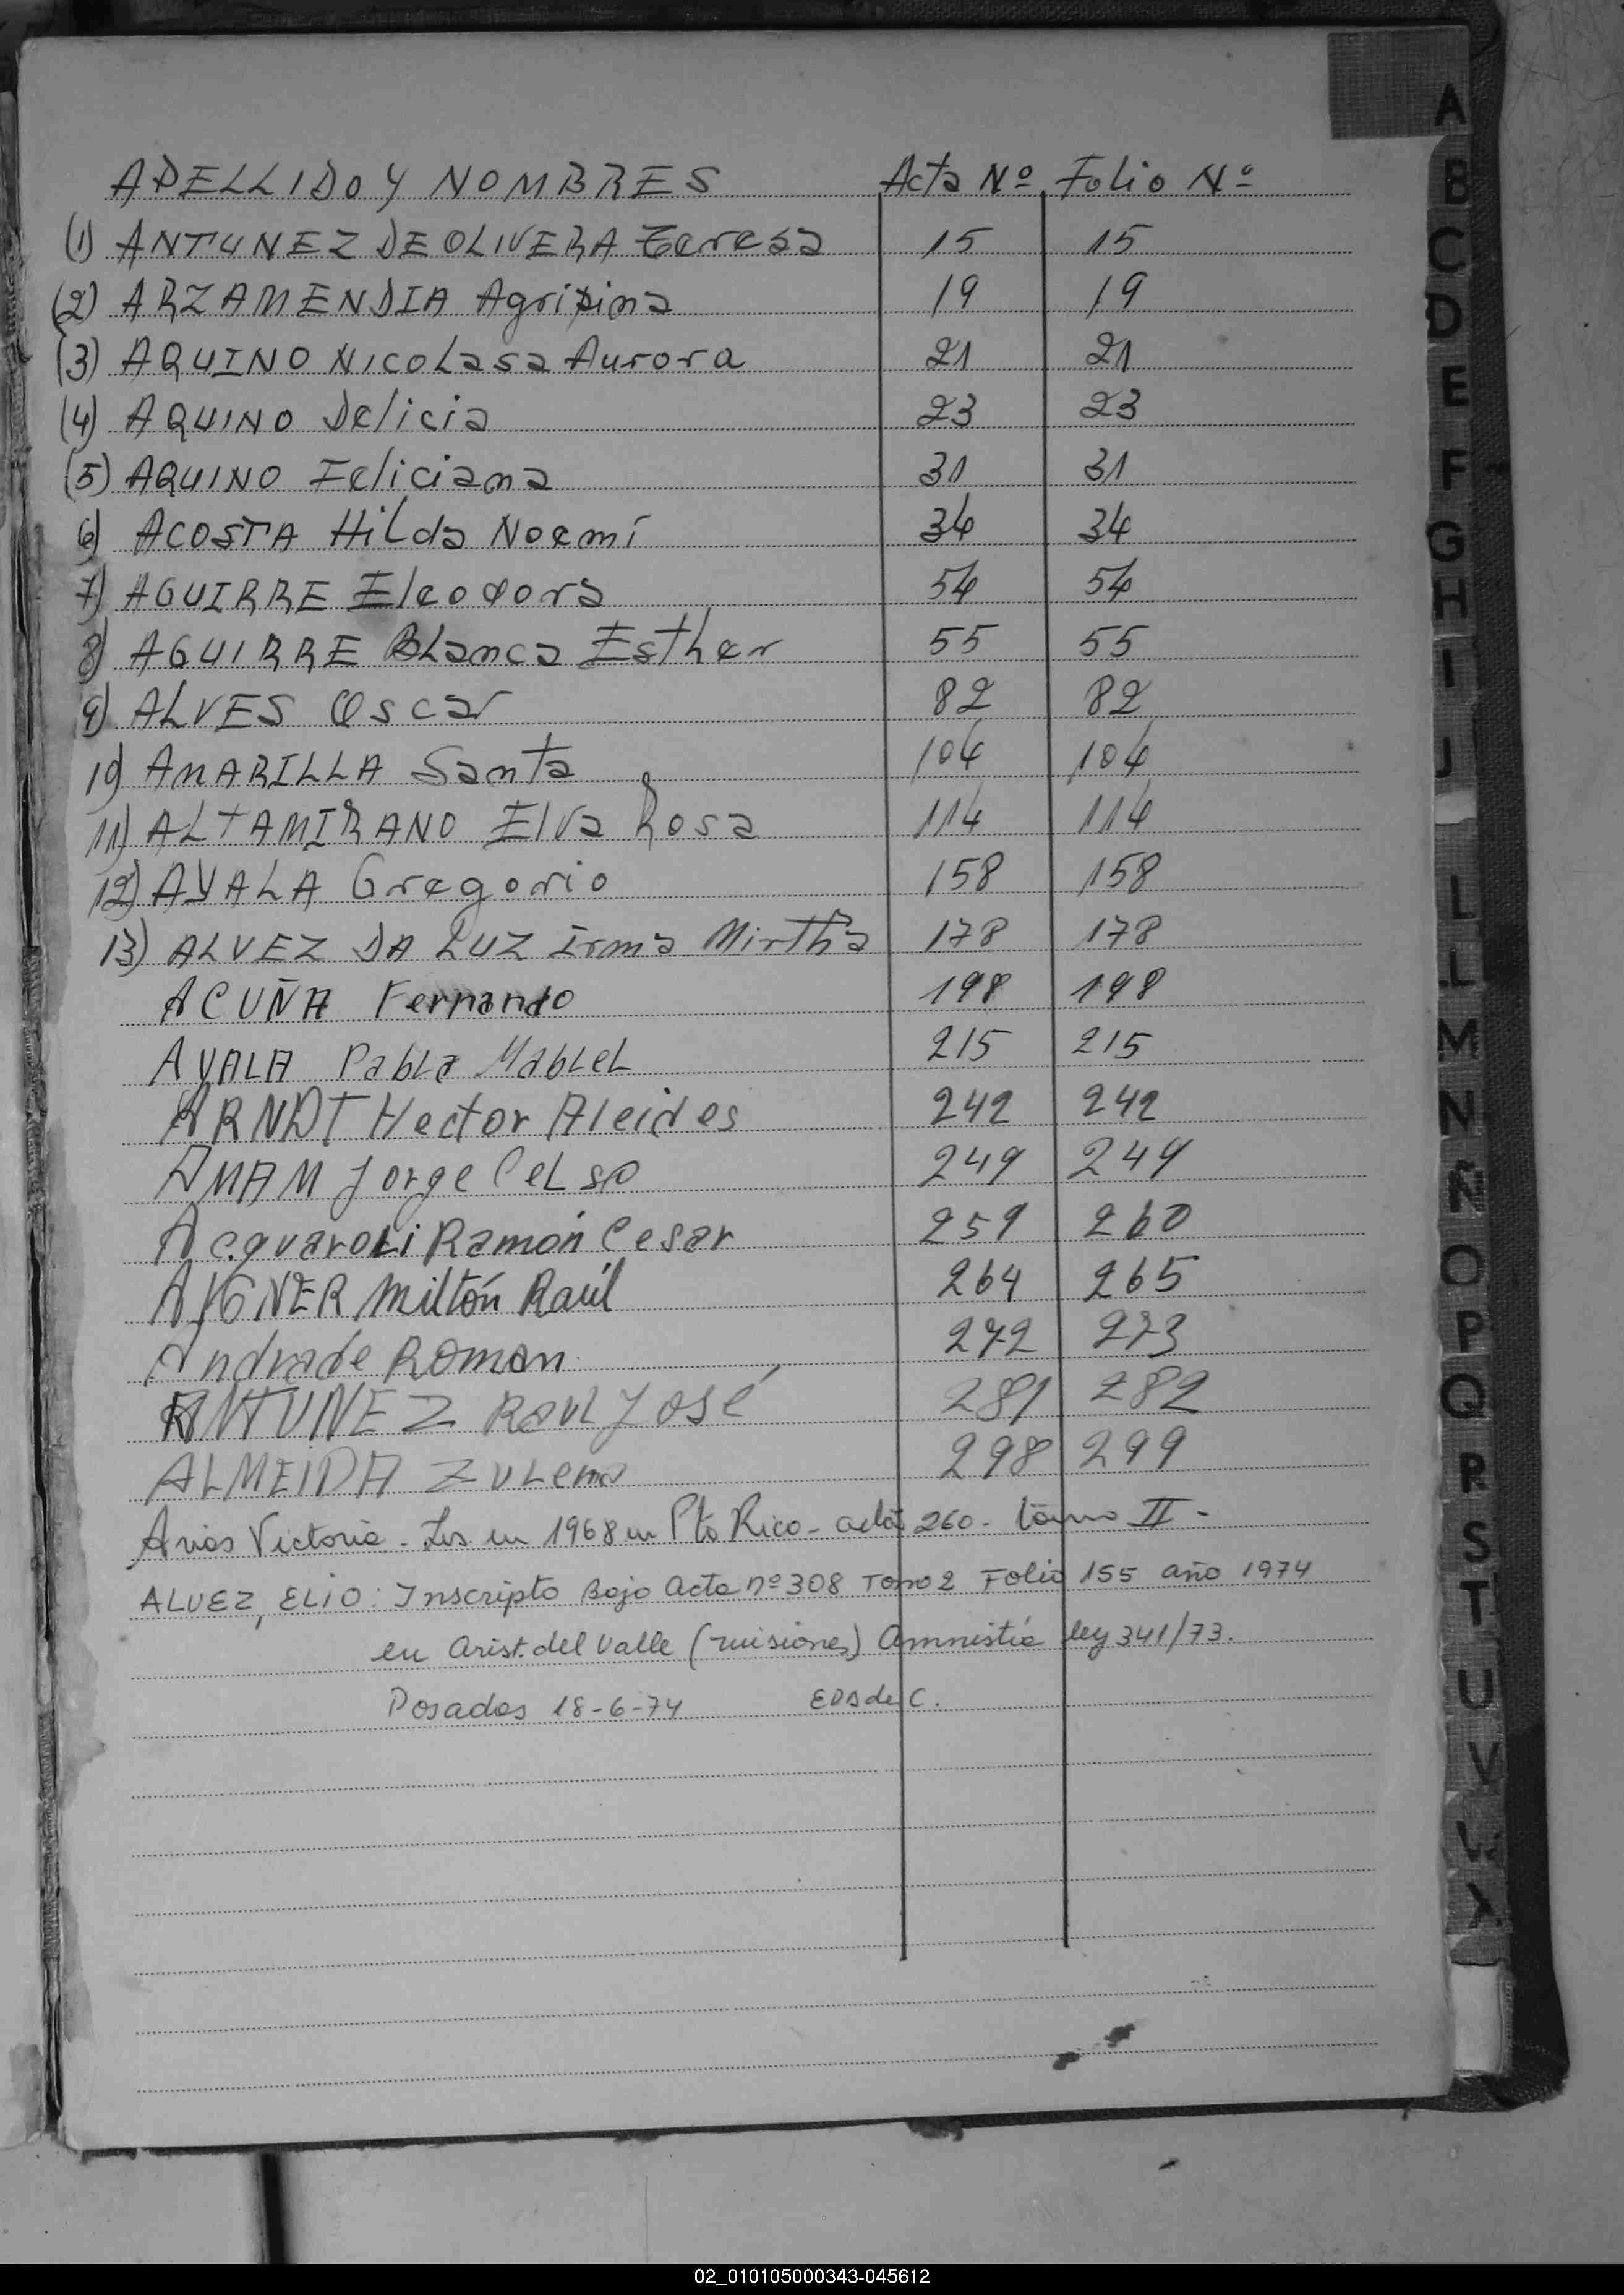 APELLIDO Y NOMBRES Acta Nº Folio Nº
(1) ANTUNEZ DE OLIVERA Teresa 15 15
(2) ARZAMENDIA Agripina 19 19
(3) AQUINO Nicolasa Aurora 21 21
(4) AQUINO Delicia 23 23
(5) AQUINO Feliciana 31 31
6) ACOSTA Hilda Noemí 34 34
7) AGUIRRE Eleodora 54 54
8) AGUIRRE Blanca Esther 55 55
9) ALVES Oscar 82 82
10) AMARILLA Santa 104 104
11) ALTAMIRANO Elva Rosa 114 114
12) AYALA Gregorio 158 158
13) ALVEZ DA LUZ Irma Mirtha 178 178
ACUÑA Fernando 198 198
AYALA Pabla Mablel 215 215
ARNDT Hector Aleides 242 242
AMAM Jorge Celso 249 249
Acquaroli Ramón Cesar 259 260
AIGNER Miltón Raúl 264 265
Andrade Roman 272 273
ANTUNEZ Raul José 281 282
ALMEIDA Zulema 298 299
Arias Victoria - Ins. en 1968 en Pto Rico - acta 260 - tomo II -
ALVEZ, ELIO: Inscripto Bajo Acta nº 308 Tomo 2 Folio 155 año 1974
en Arist. del Valle (misiones) Amnistía ley 341/73.
Posadas 18-6-74 C.
A
B
C
D
E
F
G
H
I
J
L
LL
M
N
Ñ
O
P
Q
R
S
T
U
V
W
02_010105000343-045612